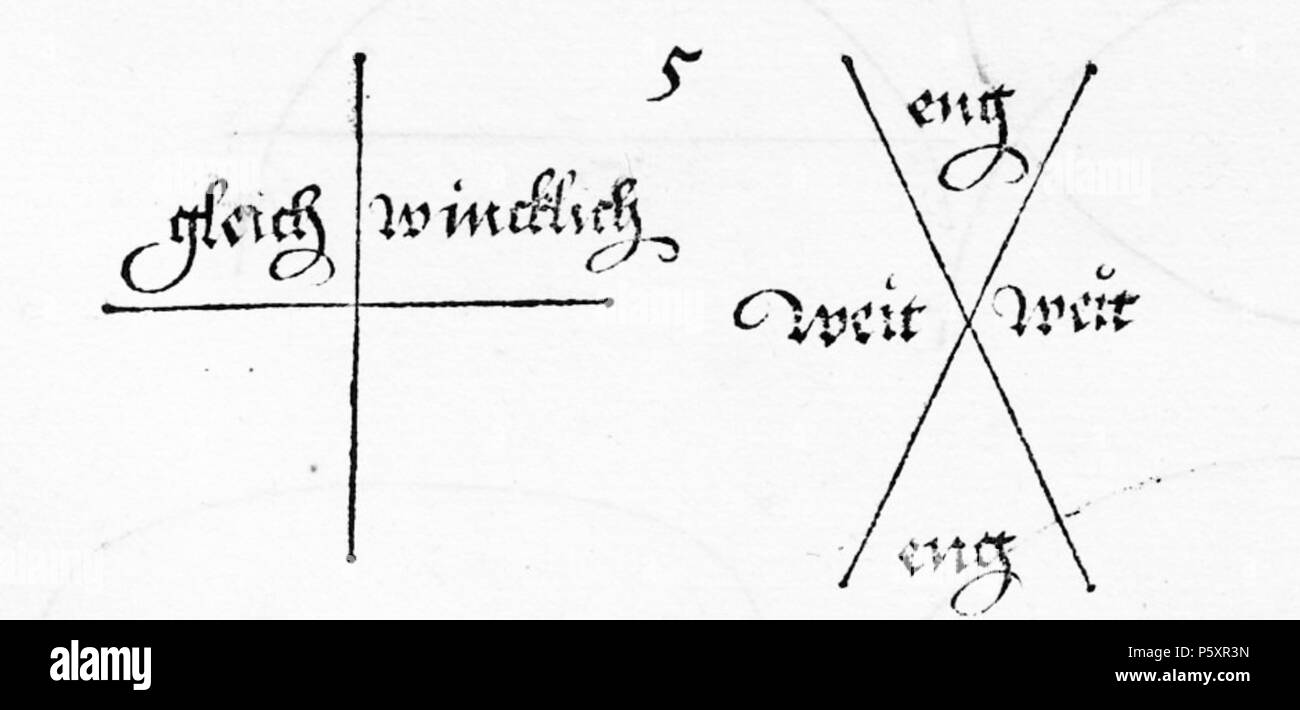 5
gleich wincklich
eng
Weit weit
eng
alamy
Image ID: P5XR3N
www.alamy.com